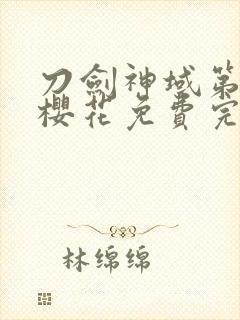 刀劍神域第
櫻花免費完
林绵绵